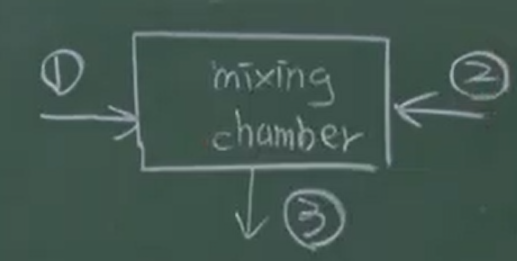 ①
mixing
②
chamber
③